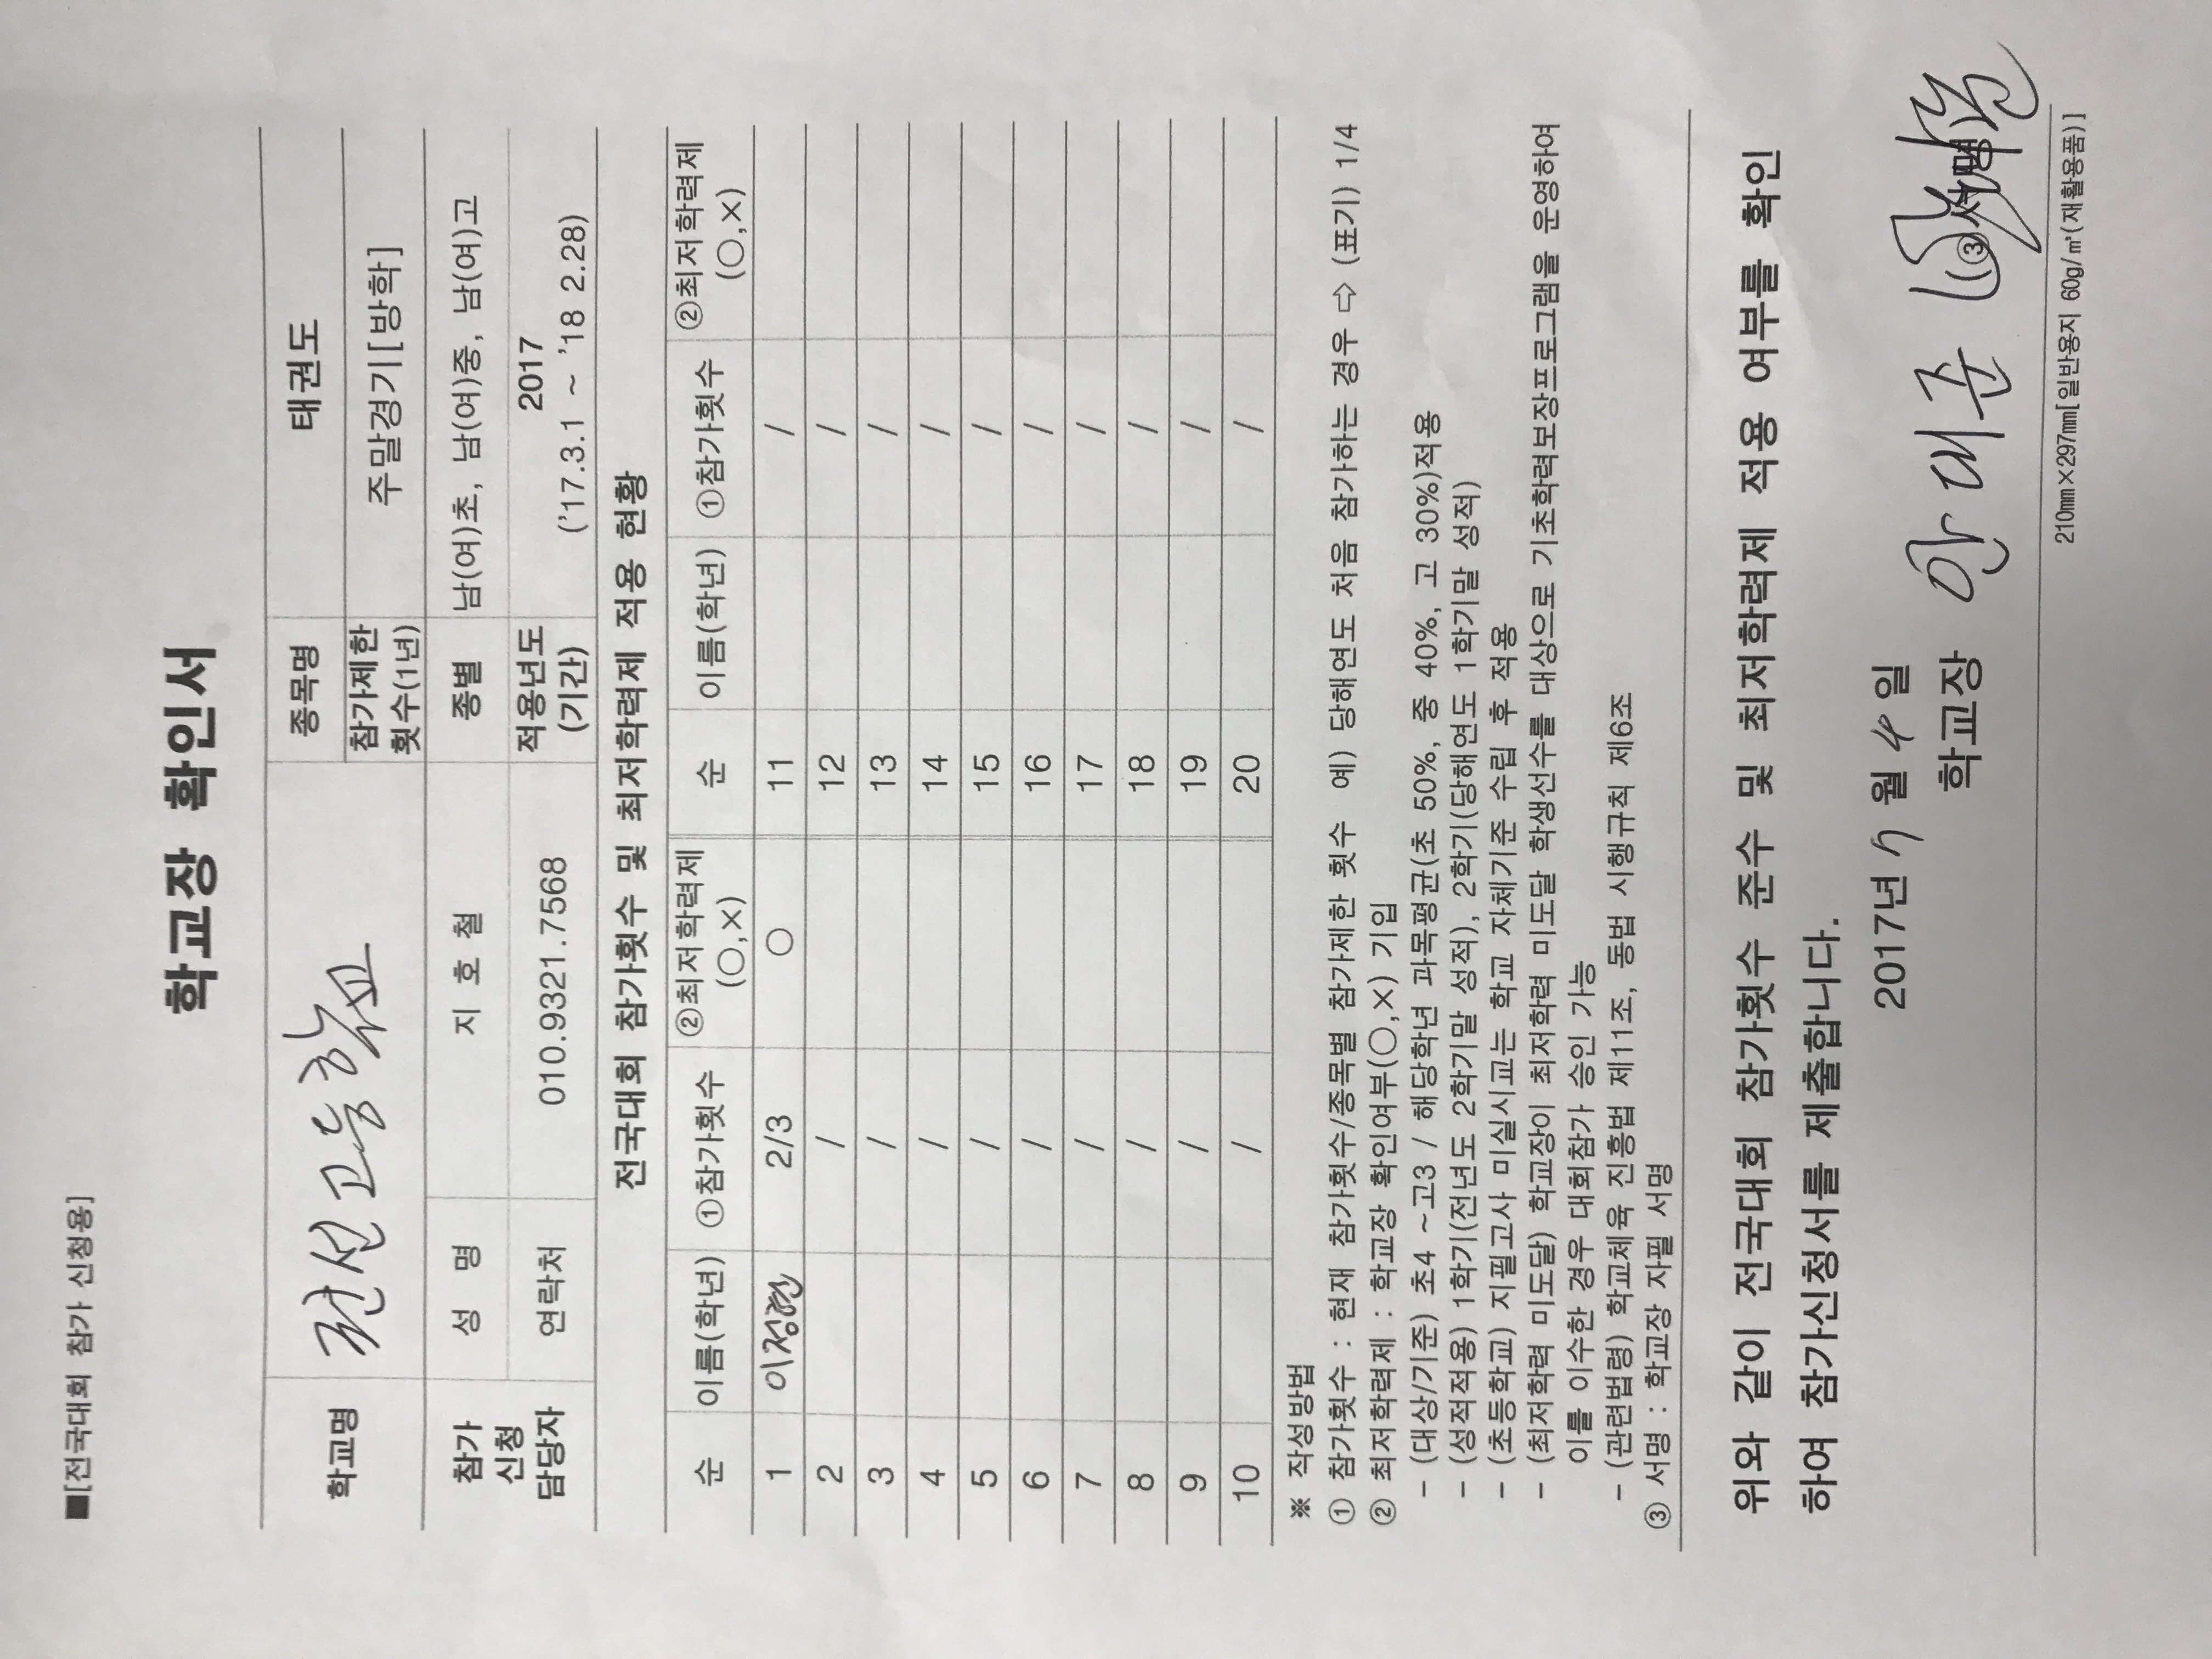 ■[전국대회 참가 신청용]
학교장 확인서
학교명 권선고등학교 종목명 태권도
참가제한 횟수(1년) 주말경기[방학]
참가 신청 담당자 성 명 지 호 철 종별 남(여)초, 남(여)중, 남(여)고
연락처 010.9321.7568 적용년도 (기간) 2017 ('17.3.1 ~ '18 2.28)
전국대회 참가횟수 및 최저학력제 적용 현황
순 이름(학년) ①참가횟수 ②최저학력제 (○,×) 순 이름(학년) ①참가횟수 ②최저학력제 (○,×)
1 이정현 2/3 ○ 11 /
2 / 12 /
3 / 13 /
4 / 14 /
5 / 15 /
6 / 16 /
7 / 17 /
8 / 18 /
9 / 19 /
10 / 20 /
※ 작성방법
① 참가횟수 : 현재 참가횟수/종목별 참가제한 횟수 예) 당해연도 처음 참가하는 경우 ⇨ (표기) 1/4
② 최저학력제 : 학교장 확인여부(○,×) 기입
- (대상/기준) 초4 ~고3 / 해당학년 과목평균(초 50%, 중 40%, 고 30%)적용
- (성적적용) 1학기(전년도 2학기말 성적), 2학기(당해연도 1학기말 성적)
- (초등학교) 지필고사 미실시교는 학교 자체기준 수립 후 적용
- (최저학력 미도달) 학교장이 최저학력 미도달 학생선수를 대상으로 기초학력보장프로그램을 운영하여
이를 이수한 경우 대회참가 승인 가능
- (관련법령) 학교체육 진흥법 제11조, 동법 시행규칙 제6조
③ 서명 : 학교장 자필 서명
위와 같이 전국대회 참가횟수 준수 및 최저학력제 적용 여부를 확인
하여 참가신청서를 제출합니다.
2017년 5월 4일
학교장 안 대 준 (③서명)
210㎜×297㎜[일반용지 60g/㎡(재활용품)]